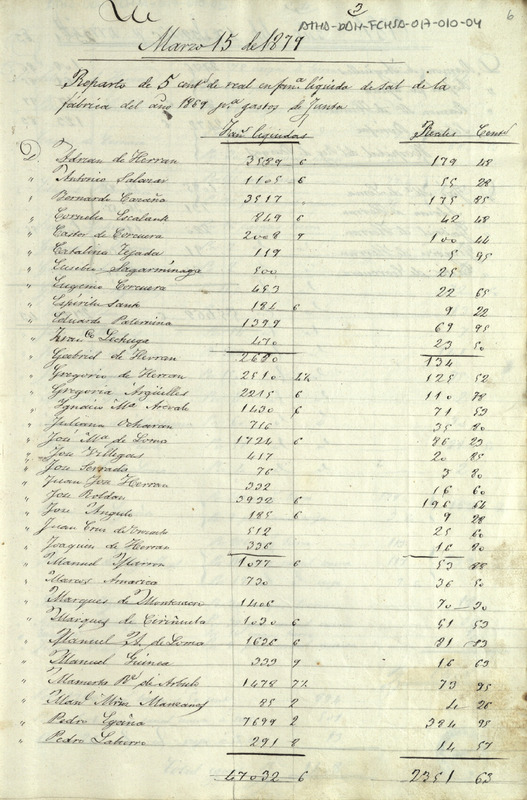 3
ATHA-DDH-FCHSA-017-010-04
6
Marzo 15 de 1879
Reparto de 5 cents de real en fana líquida de sal de la
fábrica del año 1869 pa gastos de Junta
Fans líquidas Reales Cents
D. Adrian de Herran 3589 6 179 48
" Antonio Salazar 1105 6 55 28
" Bernardo Cazaña 3517 175 85
" Cornelio Escalante 849 6 42 48
" Castor de Corcuera 2008 9 100 44
" Catalina Tejada 119 5 95
" Eusebio Sagarminaga 500 25
" Eugenio Corcuera 453 22 65
" Espíritu Santo 184 6 9 22
" Eduardo Paternina 1399 69 95
" Franco Lechuga 470 23 50
" Gabriel de Herran 2680 134
" Gregorio de Herran 2510 4½ 125 52
" Gregoria Argüelles 2215 6 110 78
" Ignacio Ma Arevalo 1430 6 71 53
" Juliana Ocharan 716 35 80
" José Ma de Loma 1724 6 86 23
" José Villegas 417 20 85
" José Serrada 76 3 80
" Juan José Herran 332 16 60
" José Roldan 3932 6 196 64
" José Angulo 185 6 9 28
" Juan Cruz de 512 25 60
" Joaquin de Herran 336 16 80
" Manuel 1077 6 53 88
" Marcos Amarica 730 36 50
" Marques de Montesacro 1406 70 30
" Marques de Ciriñuela 1030 6 51 53
" Manuel de Loma 1636 6 81 83
" Manuel Guinea 333 9 16 69
" Mamerta de 1478 7½ 73 95
" Manl Mria Manzanos 85 2 4 26
" Pedro Egaña 7699 2 384 95
" Pedro Lahorro 291 8 14 57
47032 6 2351 63